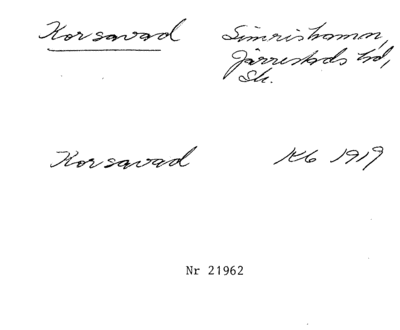 Korsavad Simrishamn,
Järrestads hd,
Sk.
Korsavad Kb 1919
Nr 21962